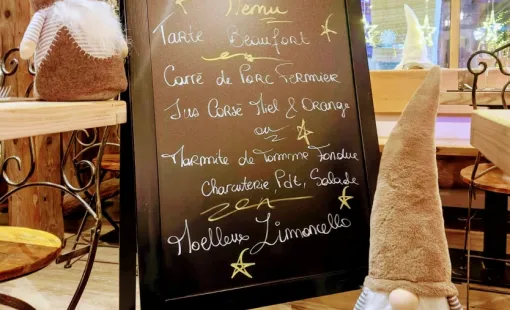 Menu
Tarte Beaufort
Carré de Porc Fermier
Jus Corse Miel & Orange
ou
Marmite de Tomme Fondue
Charcuterie, Pdt, Salade
Moelleux Limoncello